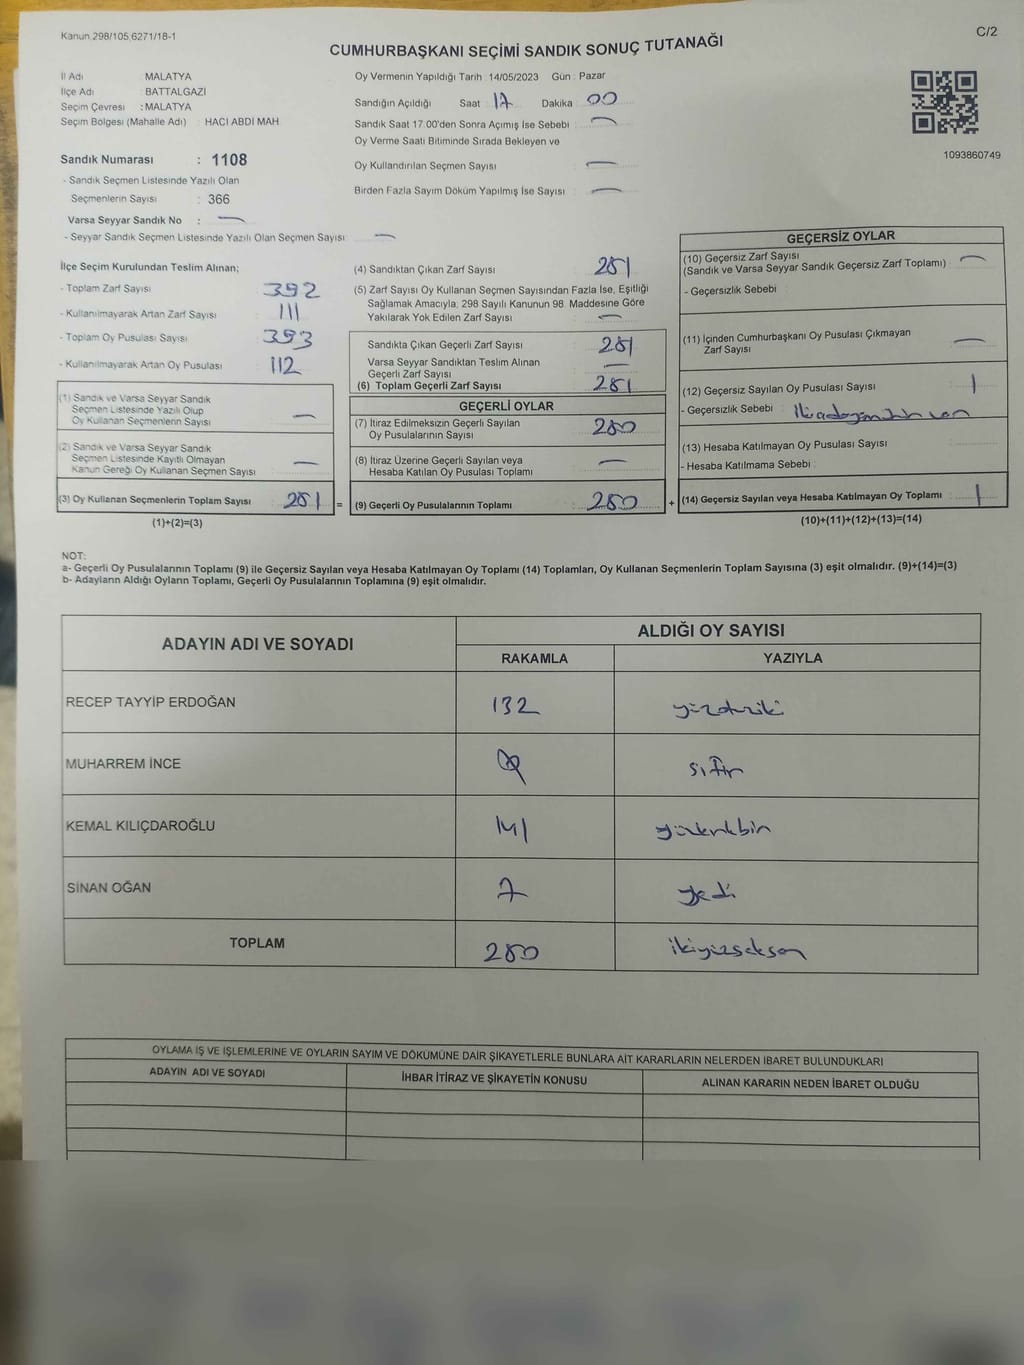 Kanun.298/105,6271/18-1
C/2
CUMHURBAŞKANI SEÇİMİ SANDIK SONUÇ TUTANAĞI
İl Adı MALATYA
İlçe Adı BATTALGAZI
Seçim Çevresi : MALATYA
Seçim Bölgesi (Mahalle Adı) : HACI ABDI MAH
Sandık Numarası : 1108
- Sandık Seçmen Listesinde Yazılı Olan
Seçmenlerin Sayısı : 366
Varsa Seyyar Sandık No : —
- Seyyar Sandık Seçmen Listesinde Yazılı Olan Seçmen Sayısı —
Oy Vermenin Yapıldığı Tarih : 14/05/2023 Gün : Pazar
Sandığın Açıldığı Saat 17 Dakika 00
Sandık Saat 17:00'den Sonra Açımış İse Sebebi : —
Oy Verme Saati Bitiminde Sırada Bekleyen ve
Oy Kullandırılan Seçmen Sayısı —
Birden Fazla Sayım Döküm Yapılmış İse Sayısı —
1093860749
İlçe Seçim Kurulundan Teslim Alınan;
- Toplam Zarf Sayısı 392
- Kullanılmayarak Artan Zarf Sayısı 111
- Toplam Oy Pusulası Sayısı 393
- Kullanılmayarak Artan Oy Pusulası 112
(1) Sandık ve Varsa Seyyar Sandık
Seçmen Listesinde Yazılı Olup
Oy Kullanan Seçmenlerin Sayısı —
(2) Sandık ve Varsa Seyyar Sandık
Seçmen Listesinde Kayıtlı Olmayan
Kanun Gereği Oy Kullanan Seçmen Sayısı —
(3) Oy Kullanan Seçmenlerin Toplam Sayısı 281 =
(1)+(2)=(3)
(4) Sandıktan Çıkan Zarf Sayısı 281
(5) Zarf Sayısı Oy Kullanan Seçmen Sayısından Fazla İse, Eşitliği
Sağlamak Amacıyla; 298 Sayılı Kanunun 98. Maddesine Göre
Yakılarak Yok Edilen Zarf Sayısı —
Sandıkta Çıkan Geçerli Zarf Sayısı 281
Varsa Seyyar Sandıktan Teslim Alınan
Geçerli Zarf Sayısı —
(6) Toplam Geçerli Zarf Sayısı 281
GEÇERLİ OYLAR
(7) İtiraz Edilmeksizin Geçerli Sayılan
Oy Pusulalarının Sayısı 280
(8) İtiraz Üzerine Geçerli Sayılan veya
Hesaba Katılan Oy Pusulası Toplamı —
(9) Geçerli Oy Pusulalarının Toplamı 280 +
GEÇERSİZ OYLAR
(10) Geçersiz Zarf Sayısı
(Sandık ve Varsa Seyyar Sandık Geçersiz Zarf Toplamı) : —
- Geçersizlik Sebebi :
(11) İçinden Cumhurbaşkanı Oy Pusulası Çıkmayan
Zarf Sayısı —
(12) Geçersiz Sayılan Oy Pusulası Sayısı 1
- Geçersizlik Sebebi :
(13) Hesaba Katılmayan Oy Pusulası Sayısı
- Hesaba Katılmama Sebebi :
(14) Geçersiz Sayılan veya Hesaba Katılmayan Oy Toplamı 1
(10)+(11)+(12)+(13)=(14)
NOT:
a- Geçerli Oy Pusulalarının Toplamı (9) ile Geçersiz Sayılan veya Hesaba Katılmayan Oy Toplamı (14) Toplamları, Oy Kullanan Seçmenlerin Toplam Sayısına (3) eşit olmalıdır. (9)+(14)=(3)
b- Adayların Aldığı Oyların Toplamı, Geçerli Oy Pusulalarının Toplamına (9) eşit olmalıdır.
ADAYIN ADI VE SOYADI ALDIĞI OY SAYISI
RAKAMLA YAZIYLA
RECEP TAYYİP ERDOĞAN 132 yüzotuziki
MUHARREM İNCE 0 sıfır
KEMAL KILIÇDAROĞLU 141 yüzkırkbir
SİNAN OĞAN 7 yedi
TOPLAM 280 ikiyüzseksen
OYLAMA İŞ VE İŞLEMLERİNE VE OYLARIN SAYIM VE DÖKÜMÜNE DAİR ŞİKAYETLERLE BUNLARA AİT KARARLARIN NELERDEN İBARET BULUNDUKLARI
ADAYIN ADI VE SOYADI İHBAR İTİRAZ VE ŞİKAYETİN KONUSU ALINAN KARARIN NEDEN İBARET OLDUĞU